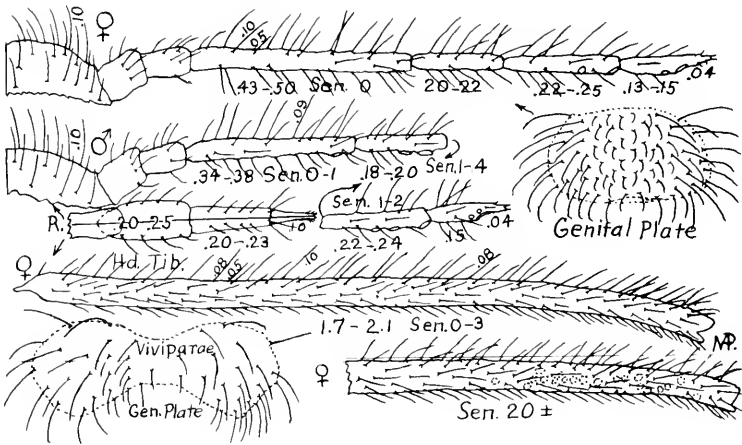 .10 ♀ .10 .05
.43-.50 Sen. 0 .20-22 .22-.25 .13-.15 .04
.10 ♂ .09
.34-.38 Sen. 0-1 .18-20 Sen. 1-4
Genital Plate
R. .20-.25 .20-.23 .10 Sen. 1-2 .22-.24 .15 .04
Hd. Tib.
♀ .08 .05 .10 .08
1.7-2.1 Sen. 0-3
Viviparae
Gen. Plate
♀ Sen. 20 ±